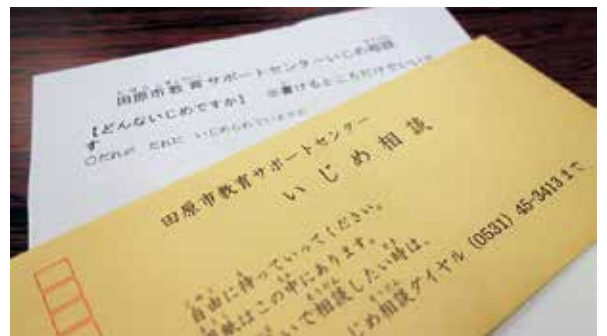 田原市教育サポートセンターいじめ相談
【どんないじめですか】 ※書けるところだけでいいで
す
○だれが だれに いじめられていますか
田原市教育サポートセンター
いじめ相談
自由に持っていってください。
はこの中にあります。
いで相談したい時は、
じめ相談ダイヤル (0531) 45-3413まで